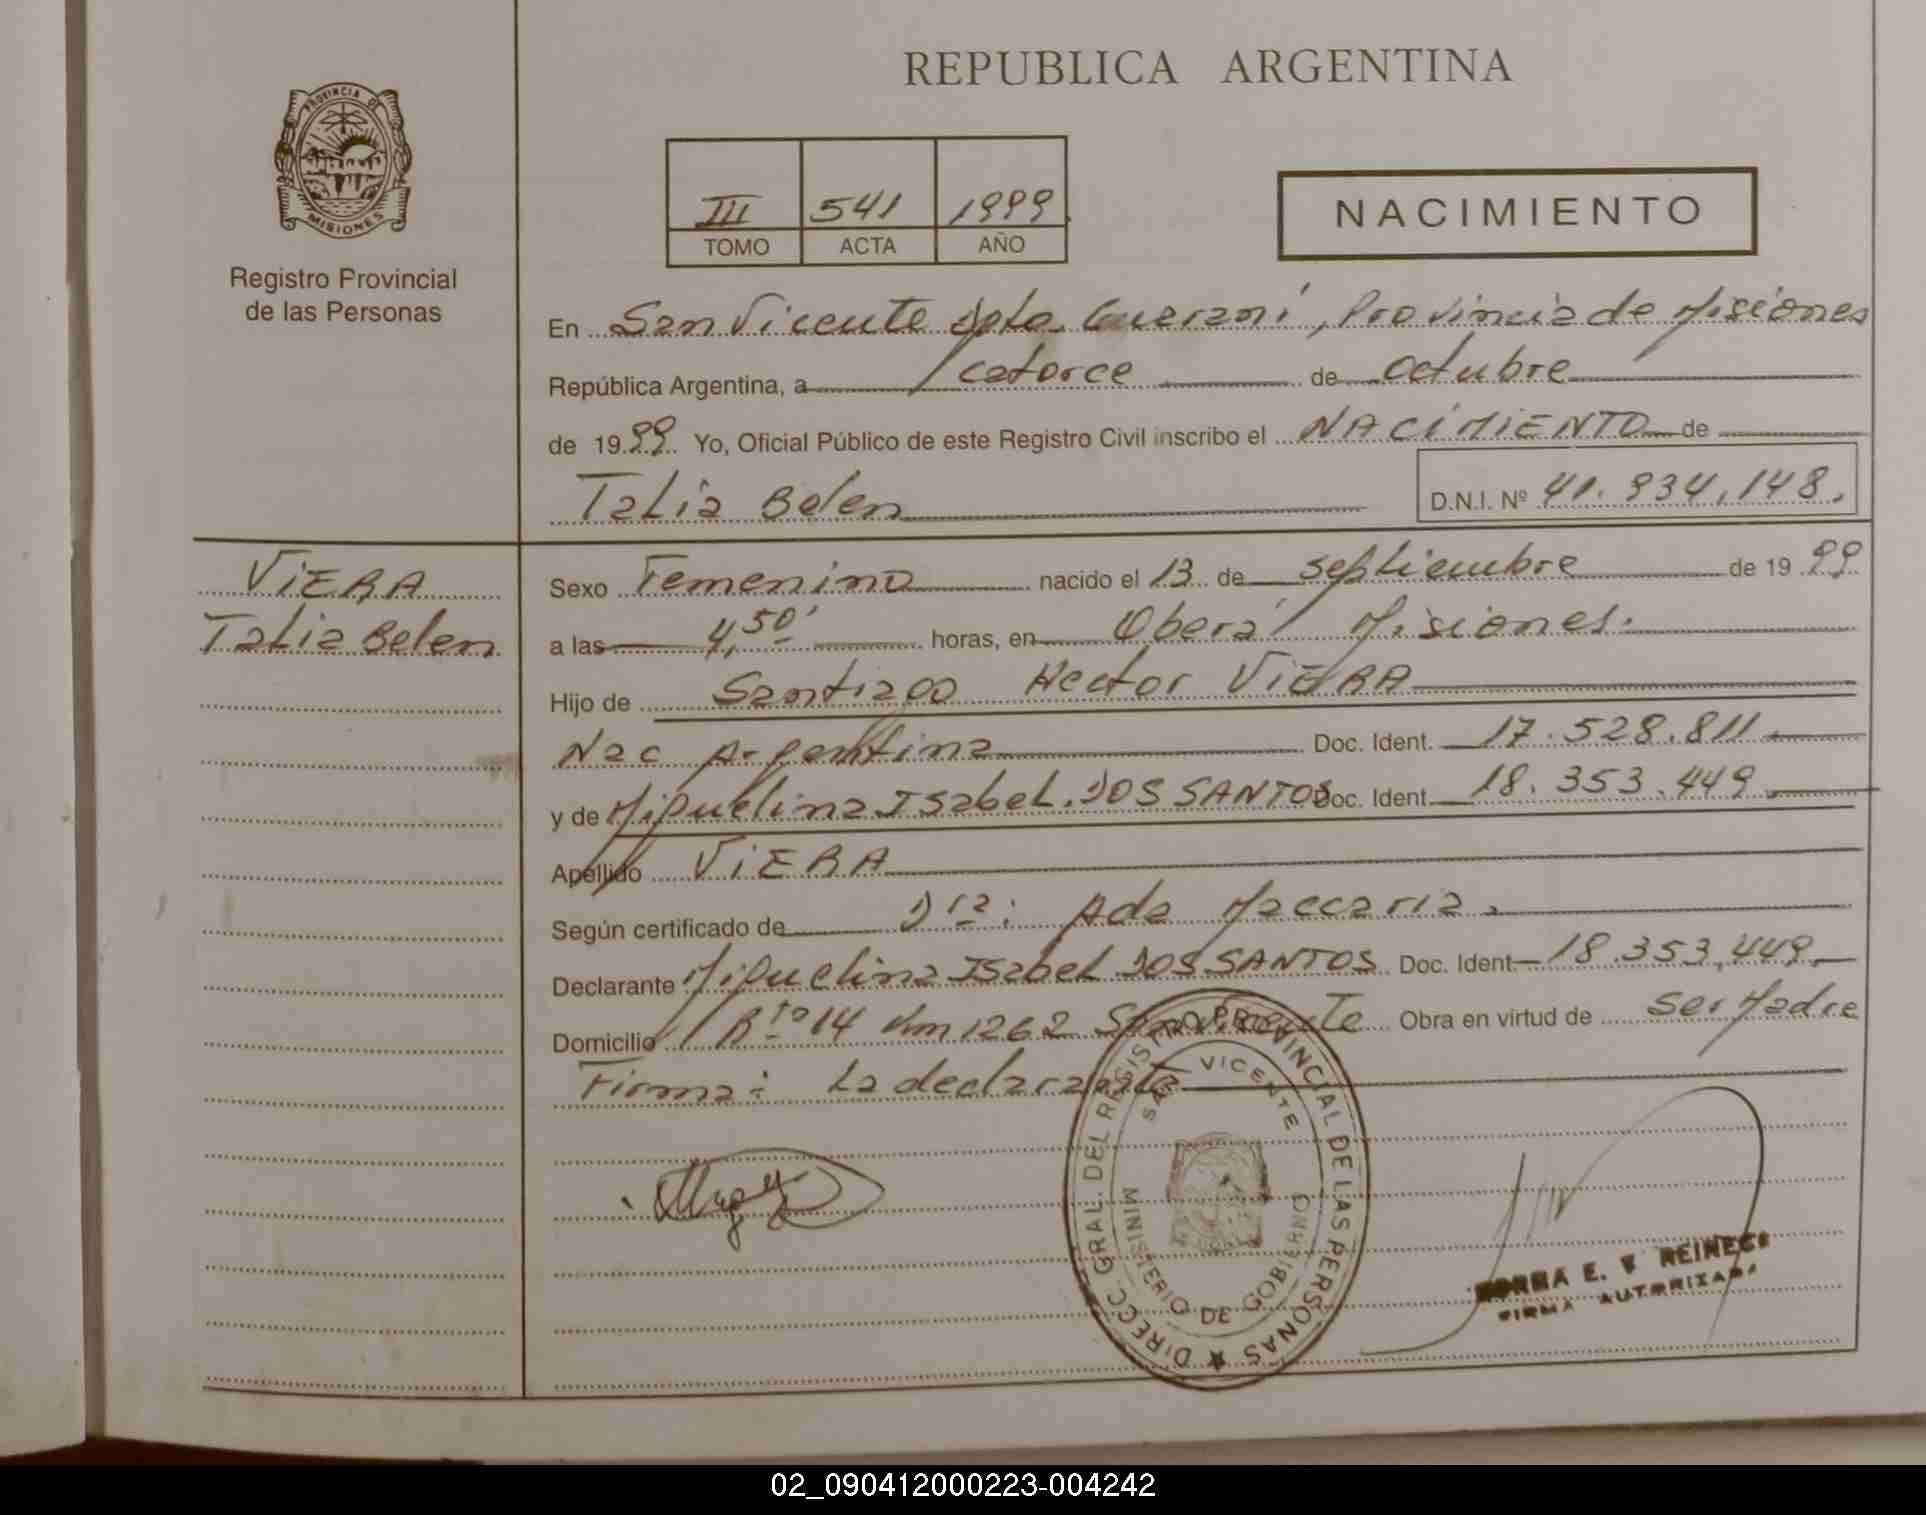 REPUBLICA ARGENTINA
PROVINCIA DE
MISIONES
Registro Provincial
de las Personas
III 541 1999
TOMO ACTA AÑO
NACIMIENTO
En San Vicente Dpto. Guaraní, Provincia de Misiones
República Argentina, a catorce de octubre
de 1999. Yo, Oficial Público de este Registro Civil inscribo el NACIMIENTO de
Talia Belen D.N.I. Nº 41.934.148.
VIERA
Talia Belen
Sexo Femenino nacido el 13 de septiembre de 1999
a las 4,50' horas, en Oberá Misiones.
Hijo de Santiago Hector VIERA
Nac Argentina Doc. Ident. 17.528.811
y de Miguelina Isabel DOS SANTOS Doc. Ident. 18.353.449
Apellido VIERA
Según certificado de Dra: Ada Maccaria.
Declarante Miguelina Isabel DOS SANTOS Doc. Ident. 18.353.449
Domicilio Rta 14 Km 1262 San Vicente Obra en virtud de Ser Madre
Firma: La declarante
DIRECC. GRAL. DEL REGISTRO PROVINCIAL DE LAS PERSONAS
SAN VICENTE
MINISTERIO DE GOBIERNO
NORMA E. V REINECK
FIRMA AUTORIZADA
02_090412000223-004242